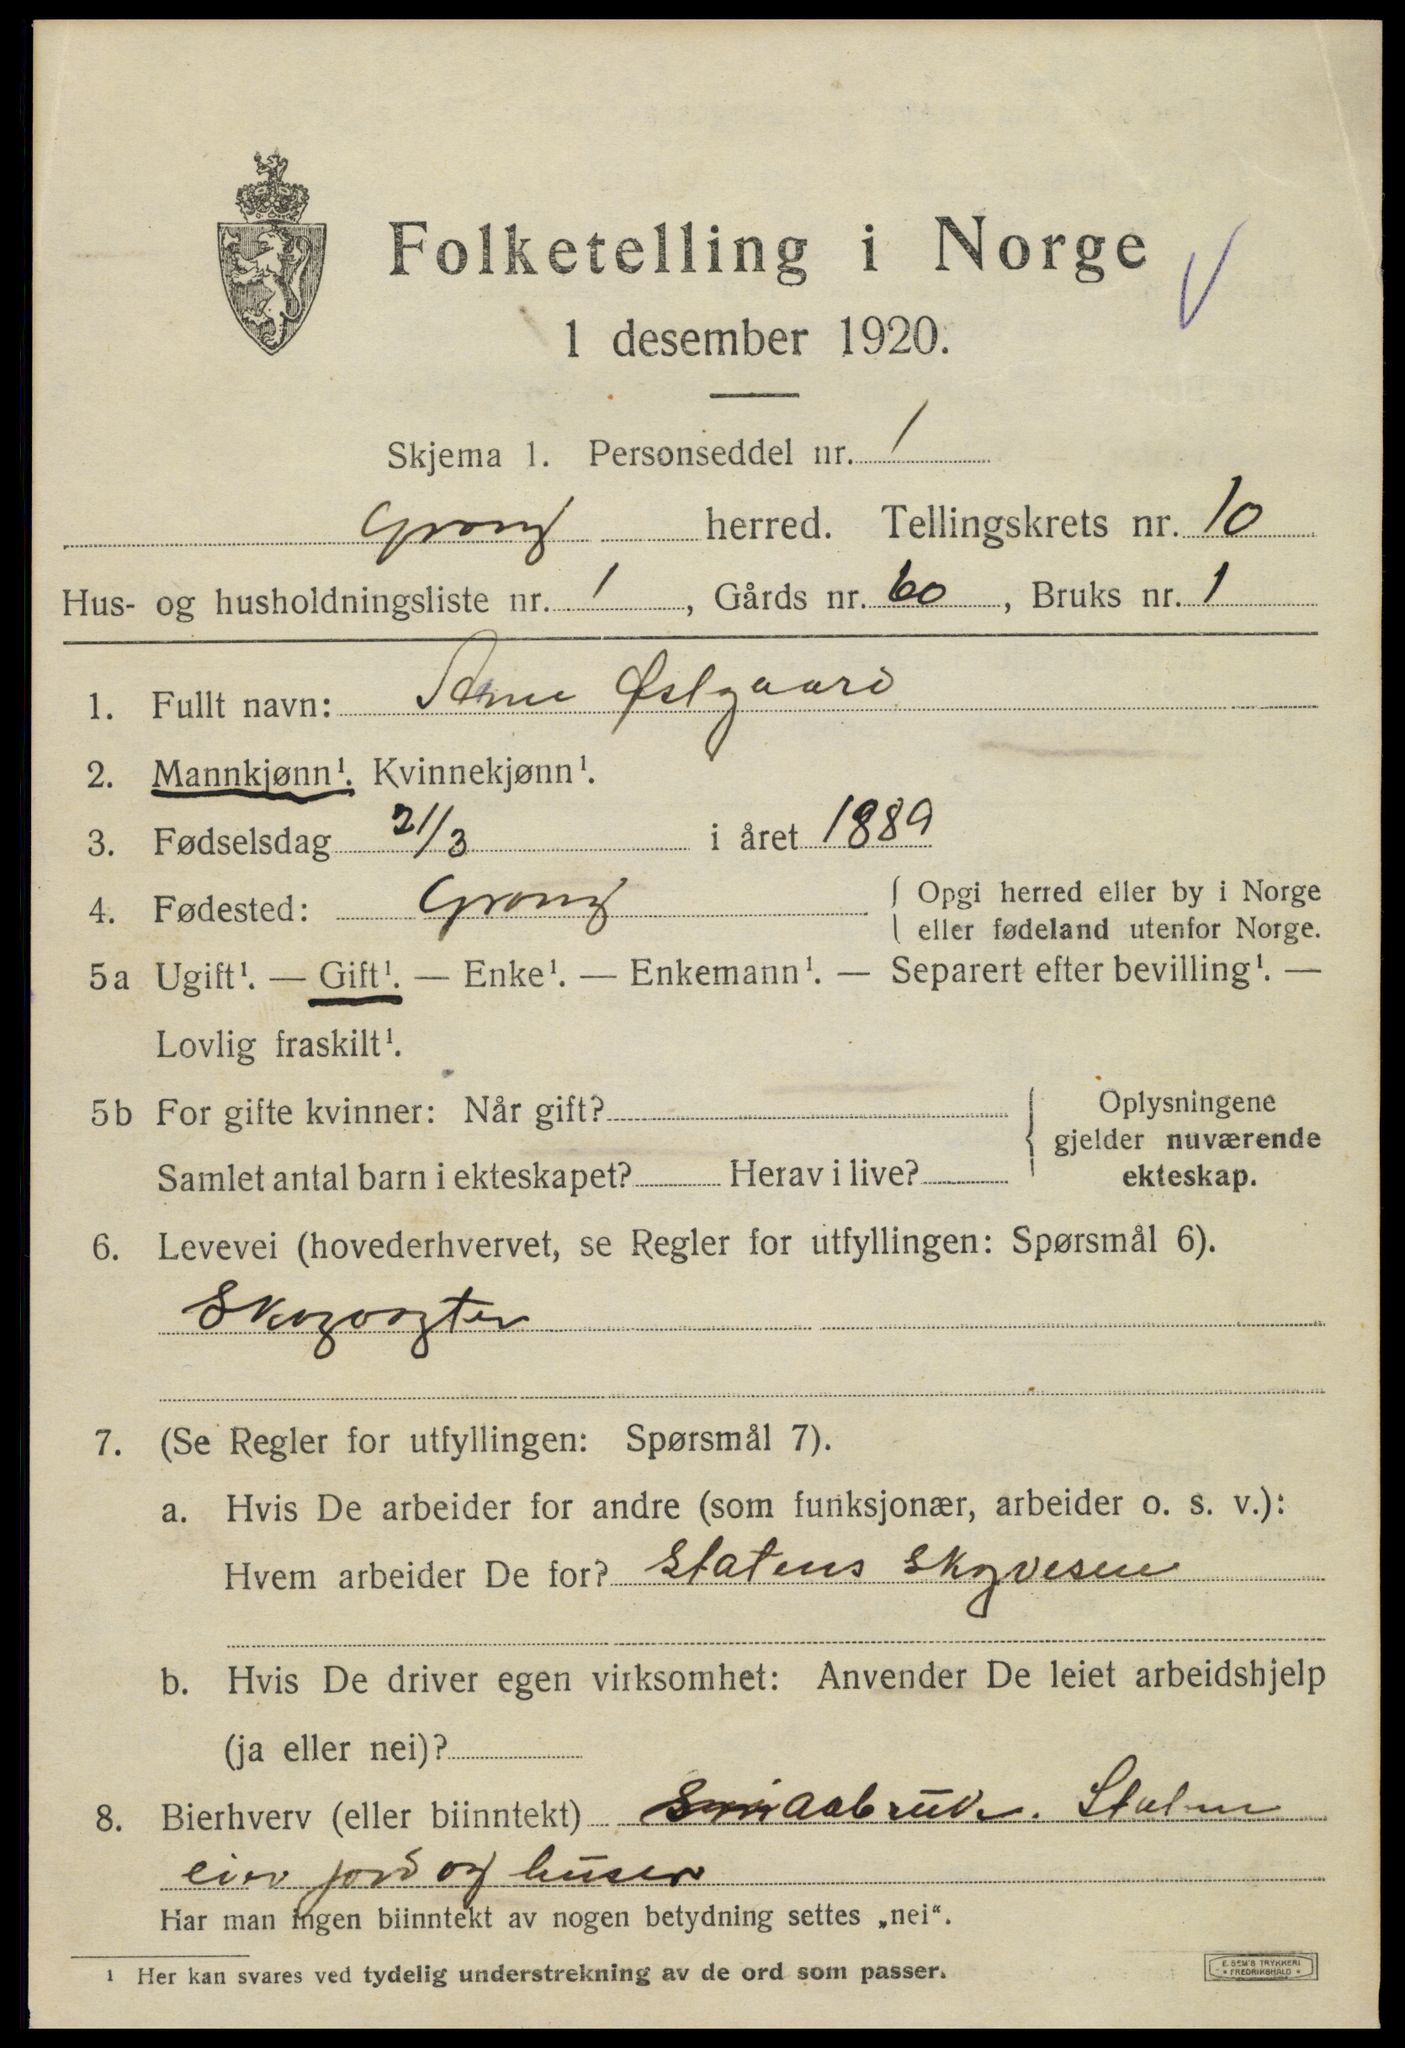 Folketelling i Norge
1 desember 1920.
Skjema 1. Personseddel nr. 1
Grong herred. Tellingskrets nr. 10
Hus- og husholdningsliste nr. 1, Gårds nr. 60, Bruks nr. 1
1. Fullt navn: Arne Østgaard
2. Mannkjønn¹. Kvinnekjønn¹.
3. Fødselsdag 21/3 i året 1889
4. Fødested: Grong { Opgi herred eller by i Norge
eller fødeland utenfor Norge.
5a Ugift¹. — Gift¹. — Enke¹. — Enkemann¹. — Separert efter bevilling¹. —
Lovlig fraskilt¹.
5b For gifte kvinner: Når gift?
Samlet antal barn i ekteskapet? Herav i live?
Oplysningene
gjelder nuværende
ekteskap.
6. Levevei (hovederhvervet, se Regler for utfyllingen: Spørsmål 6).
Skogvogter
7. (Se Regler for utfyllingen: Spørsmål 7).
a. Hvis De arbeider for andre (som funksjonær, arbeider o. s. v.):
Hvem arbeider De for? Statens Skogvesen
b. Hvis De driver egen virksomhet: Anvender De leiet arbeidshjelp
(ja eller nei)?
8. Bierhverv (eller biinntekt) Smaabruk. Staten
eier jord og huser
Har man ingen biinntekt av nogen betydning settes „nei“.
¹ Her kan svares ved tydelig understrekning av de ord som passer.
E. SEM'S TRYKKERI
FREDRIKSHALD